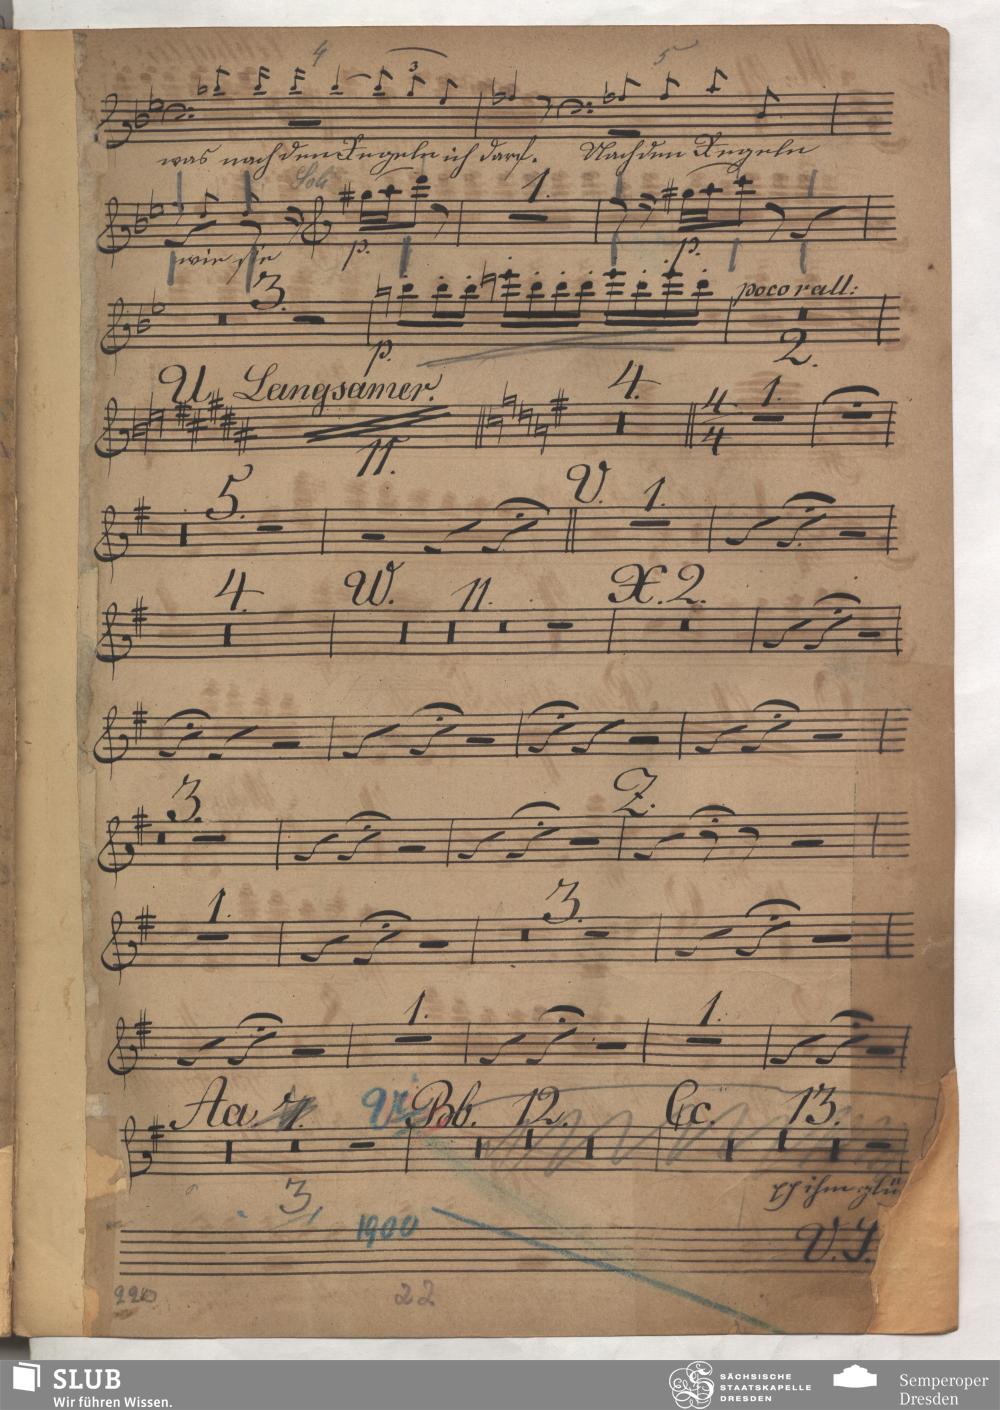 4 3 5
was nach den Regeln ich darf. Nach den Regeln
Soli 1.
wie sie p. p.
3. poco rall:
p. 2.
U. Langsamer. 4. 4 1.
11. 4
5. V. 1.
4. W. 11. X. 2.
3. Z.
1. 3.
1. 1.
Aa. Bb. 12. Cc. 13.
ihm glü
3
1900
V. S.
220 22
SLUB
Wir führen Wissen.
SÄCHSISCHE
STAATSKAPELLE
DRESDEN
Semperoper
Dresden